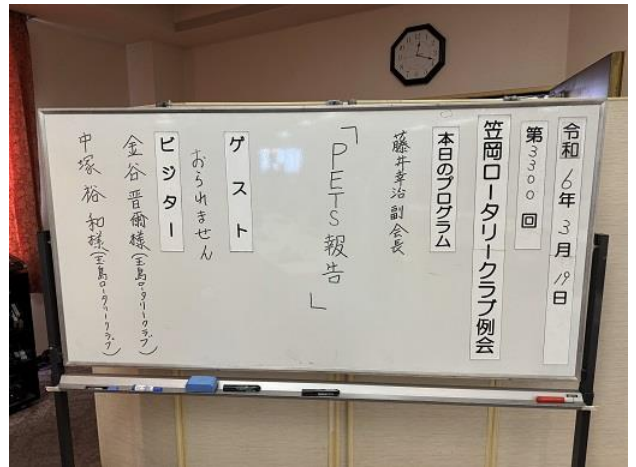 令和6年3月19日
第3300回
笠岡ロータリークラブ例会
本日のプログラム
藤井幸治副会長
「PETS報告」
ゲスト
おられません
ビジター
金谷晋爾様(玉島ロータリークラブ)
中塚裕和様(玉島ロータリークラブ)